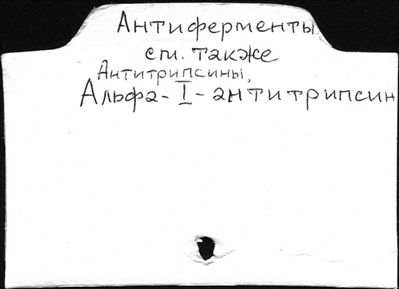 Антиферменты
см. также
Антитрипсины,
Альфа-I-антитрипсин